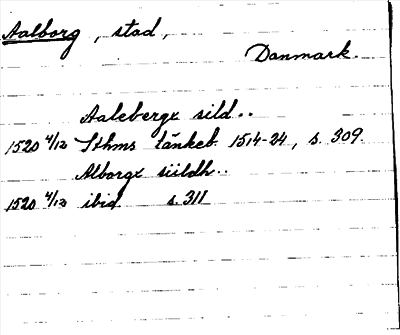 Aalborg, stad,
Danmark.
Aalebergx sild..
1520 4/12 Sthms tänkeb. 1514-24, s. 309.
Alborgx siildh..
1520 4/12 ibid s. 311